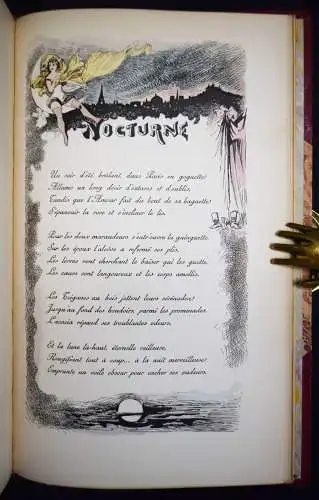 NOCTURNE
Un soir d'été brûlant, dans Paris en goguette
Allume un long désir d'extases et d'oublis,
Tandis que l'Amour fait du bout de sa baguette
S'épanouir la rose et s'incliner le lis.
Pour les doux maraudeurs s'entr'ouvre la guinguette
Sur les époux l'alcôve a refermé ses plis.
Les lèvres vont cherchant le baiser qui les guette
Les cœurs sont langoureux et les corps amollis.
Les Tziganes au bois jettent leurs sérénades
Jusqu'au fond des boudoirs, parmi les promenades
L'acacia répand ses troublantes odeurs.
Et la lune là-haut, éternelle veilleuse
Rougissant tout à coup... à la nuit merveilleuse
Emprunte un voile obscur pour cacher ses